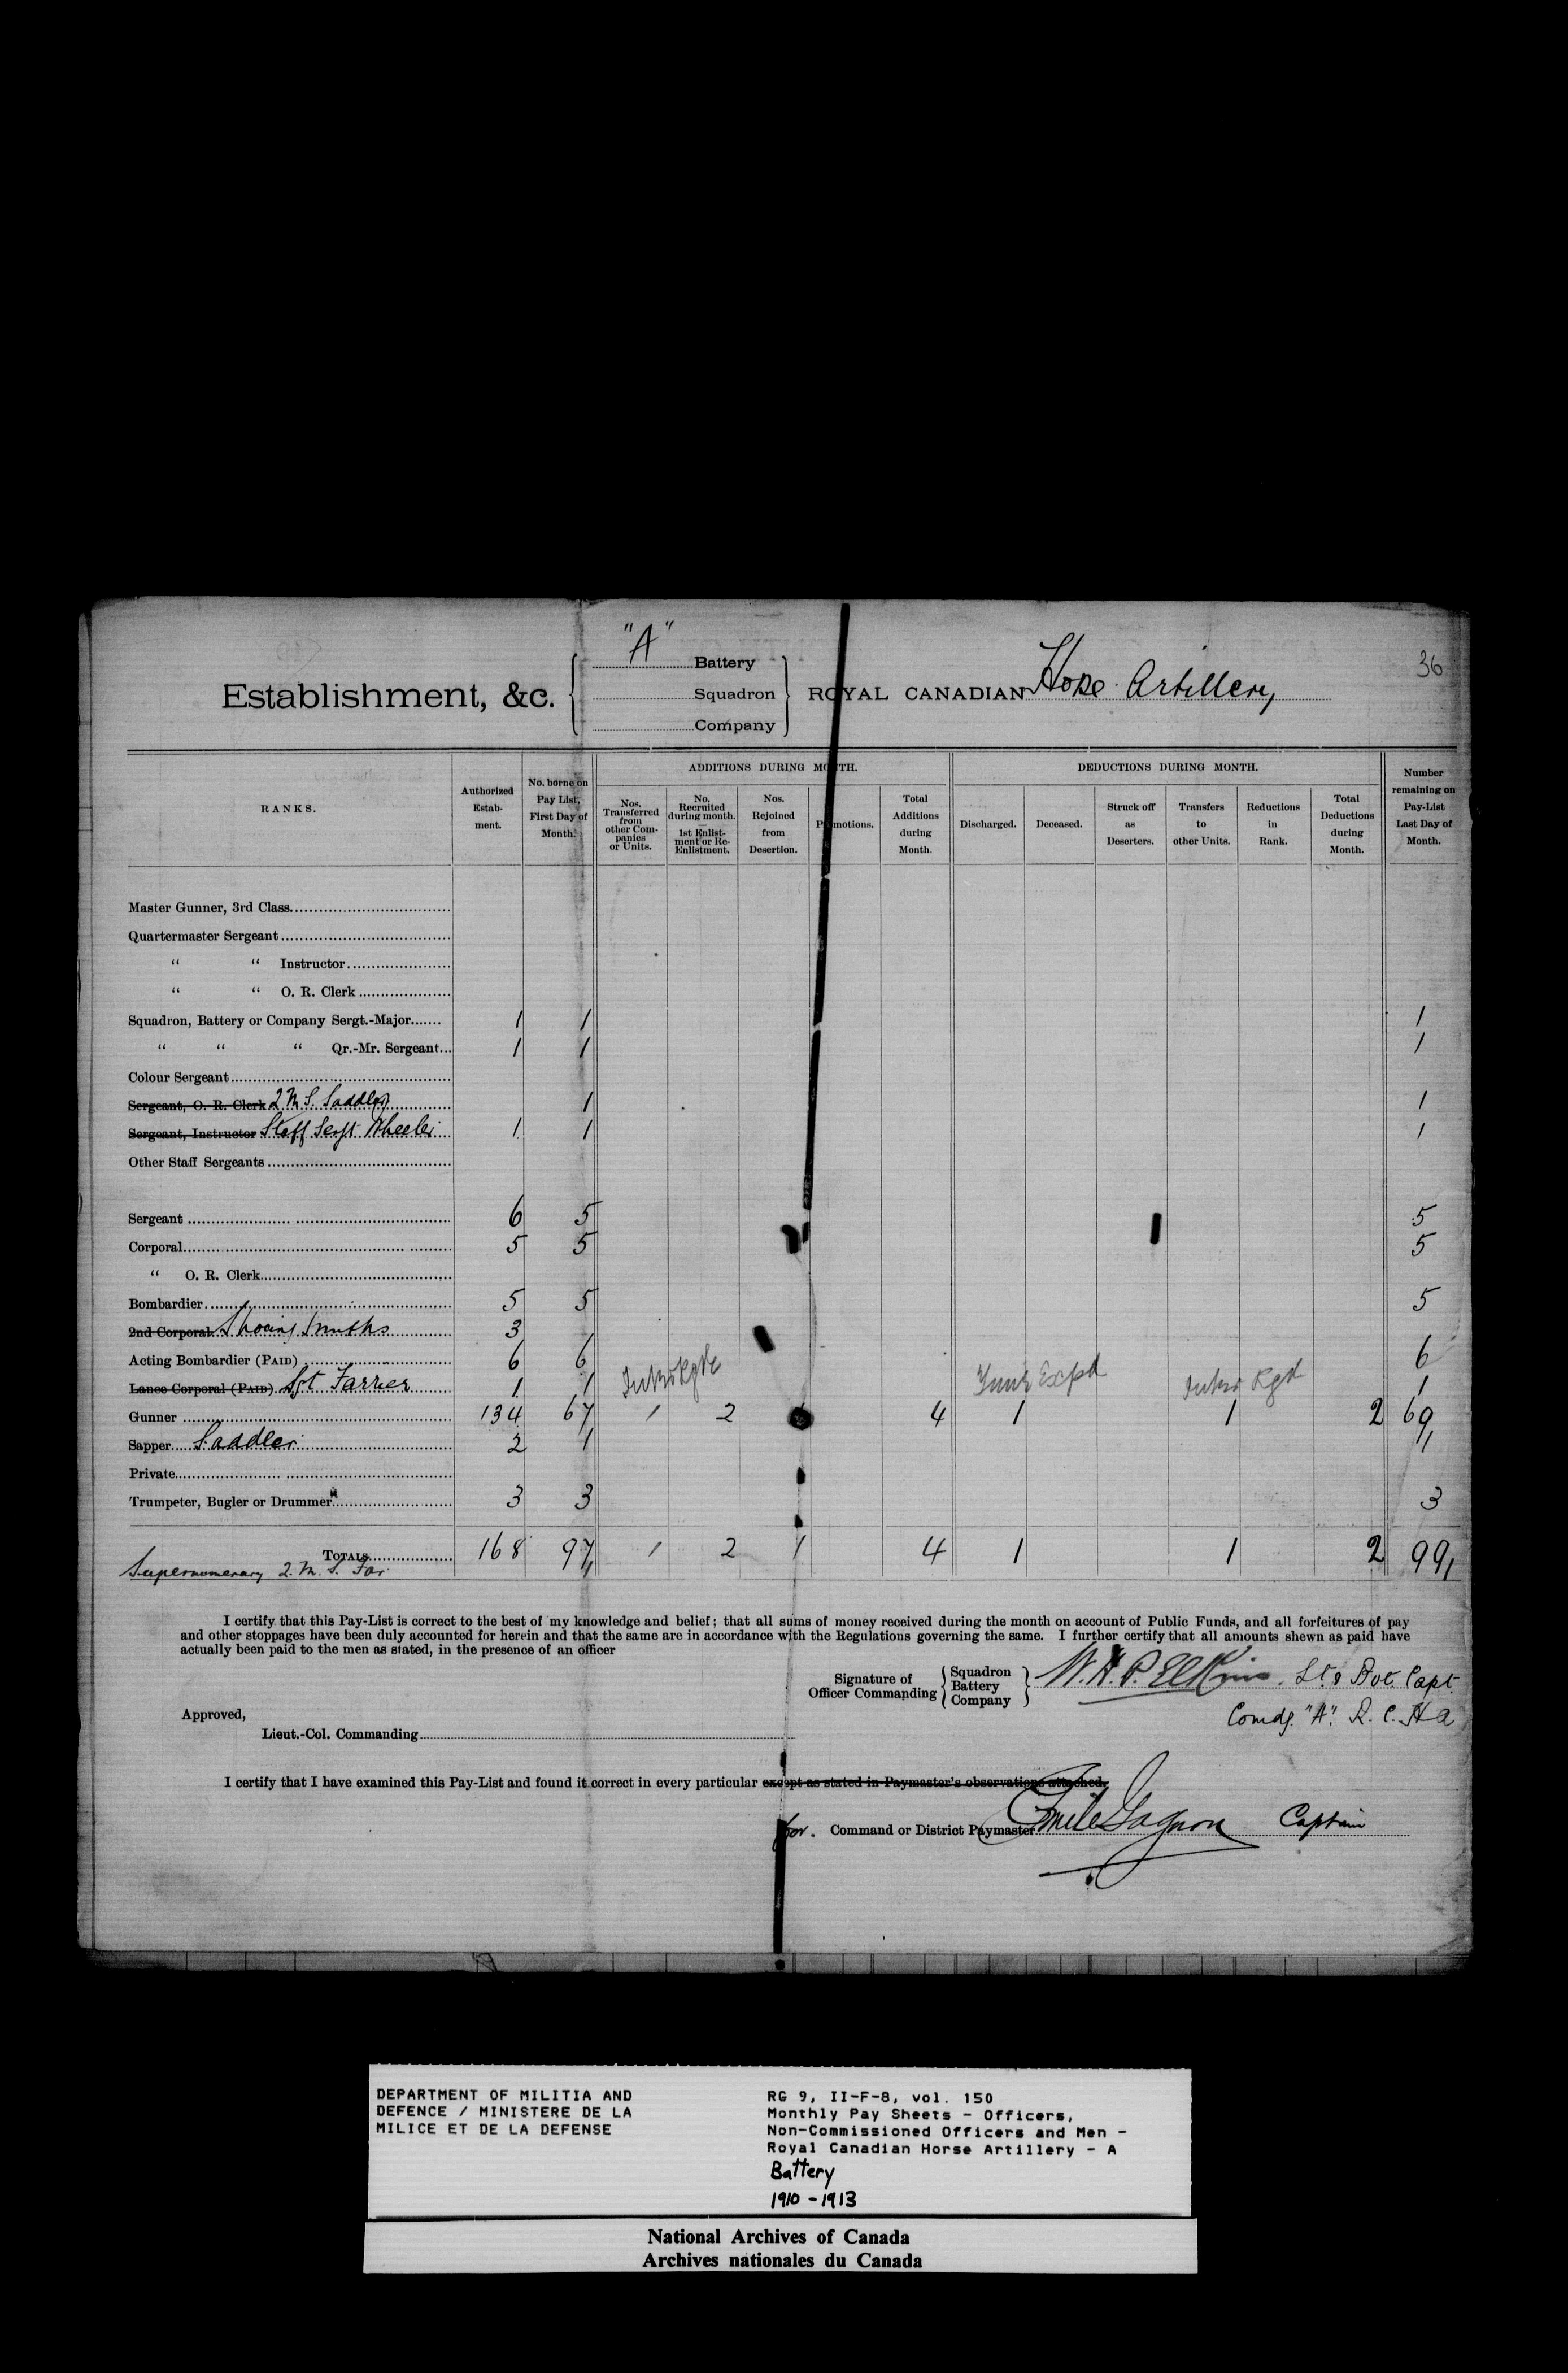 36
"A" Battery
Squadron
Company
Establishment, &c.
ROYAL CANADIAN Horse Artillery
RANKS.
Authorized Estab-ment.
No. borne on Pay List, First Day of Month.
ADDITIONS DURING MONTH.
Nos. Transferred from other Com-panies or Units.
No. Recruited during month. — 1st Enlist-ment or Re-Enlistment.
Nos. Rejoined from Desertion.
Promotions.
Total Additions during Month.
DEDUCTIONS DURING MONTH.
Discharged.
Deceased.
Struck off as Deserters.
Transfers to other Units.
Reductions in Rank.
Total Deductions during Month.
Number remaining on Pay-List Last Day of Month.
Master Gunner, 3rd Class
Quartermaster Sergeant
" " Instructor
" " O. R. Clerk
Squadron, Battery or Company Sergt.-Major 1 1 1
" " " Qr.-Mr. Sergeant 1 1 1
Colour Sergeant
Sergeant, O. R. Clerk Q M S. Saddler 1 1
Sergeant, Instructor Staff Sergt Wheeler 1 1 1
Other Staff Sergeants
Sergeant 6 5 5
Corporal 5 5 5
" O. R. Clerk
Bombardier 5 5 5
2nd Corporal Shoeing Smiths 3
Acting Bombardier (PAID) 6 6 6
Lance Corporal (PAID) Sgt Farrier 1 1 1
Gunner 134 67 1 2 1 4 1 1 2 69
Sapper Saddler 2 1 1
Private
Trumpeter, Bugler or Drummer 3 3 3
TOTALS 168 97 1 2 1 4 1 1 2 99
Supernumerary Q. M. S. Far 1 1
I certify that this Pay-List is correct to the best of my knowledge and belief; that all sums of money received during the month on account of Public Funds, and all forfeitures of pay
and other stoppages have been duly accounted for herein and that the same are in accordance with the Regulations governing the same. I further certify that all amounts shewn as paid have
actually been paid to the men as stated, in the presence of an officer
Signature of Officer Commanding
Squadron
Battery
Company
W. H. P. Elkins. Lt & Bvt. Capt.
Comdg. "A". R. C. H A
Approved,
Lieut.-Col. Commanding
I certify that I have examined this Pay-List and found it correct in every particular except as stated in Paymaster's observations attached.
for. Command or District Paymaster Emile Gagnon Captain
DEPARTMENT OF MILITIA AND
DEFENCE / MINISTERE DE LA
MILICE ET DE LA DEFENSE
RG 9, II-F-8, vol. 150
Monthly Pay Sheets - Officers,
Non-Commissioned Officers and Men -
Royal Canadian Horse Artillery - A
Battery
1910 - 1913
National Archives of Canada
Archives nationales du Canada